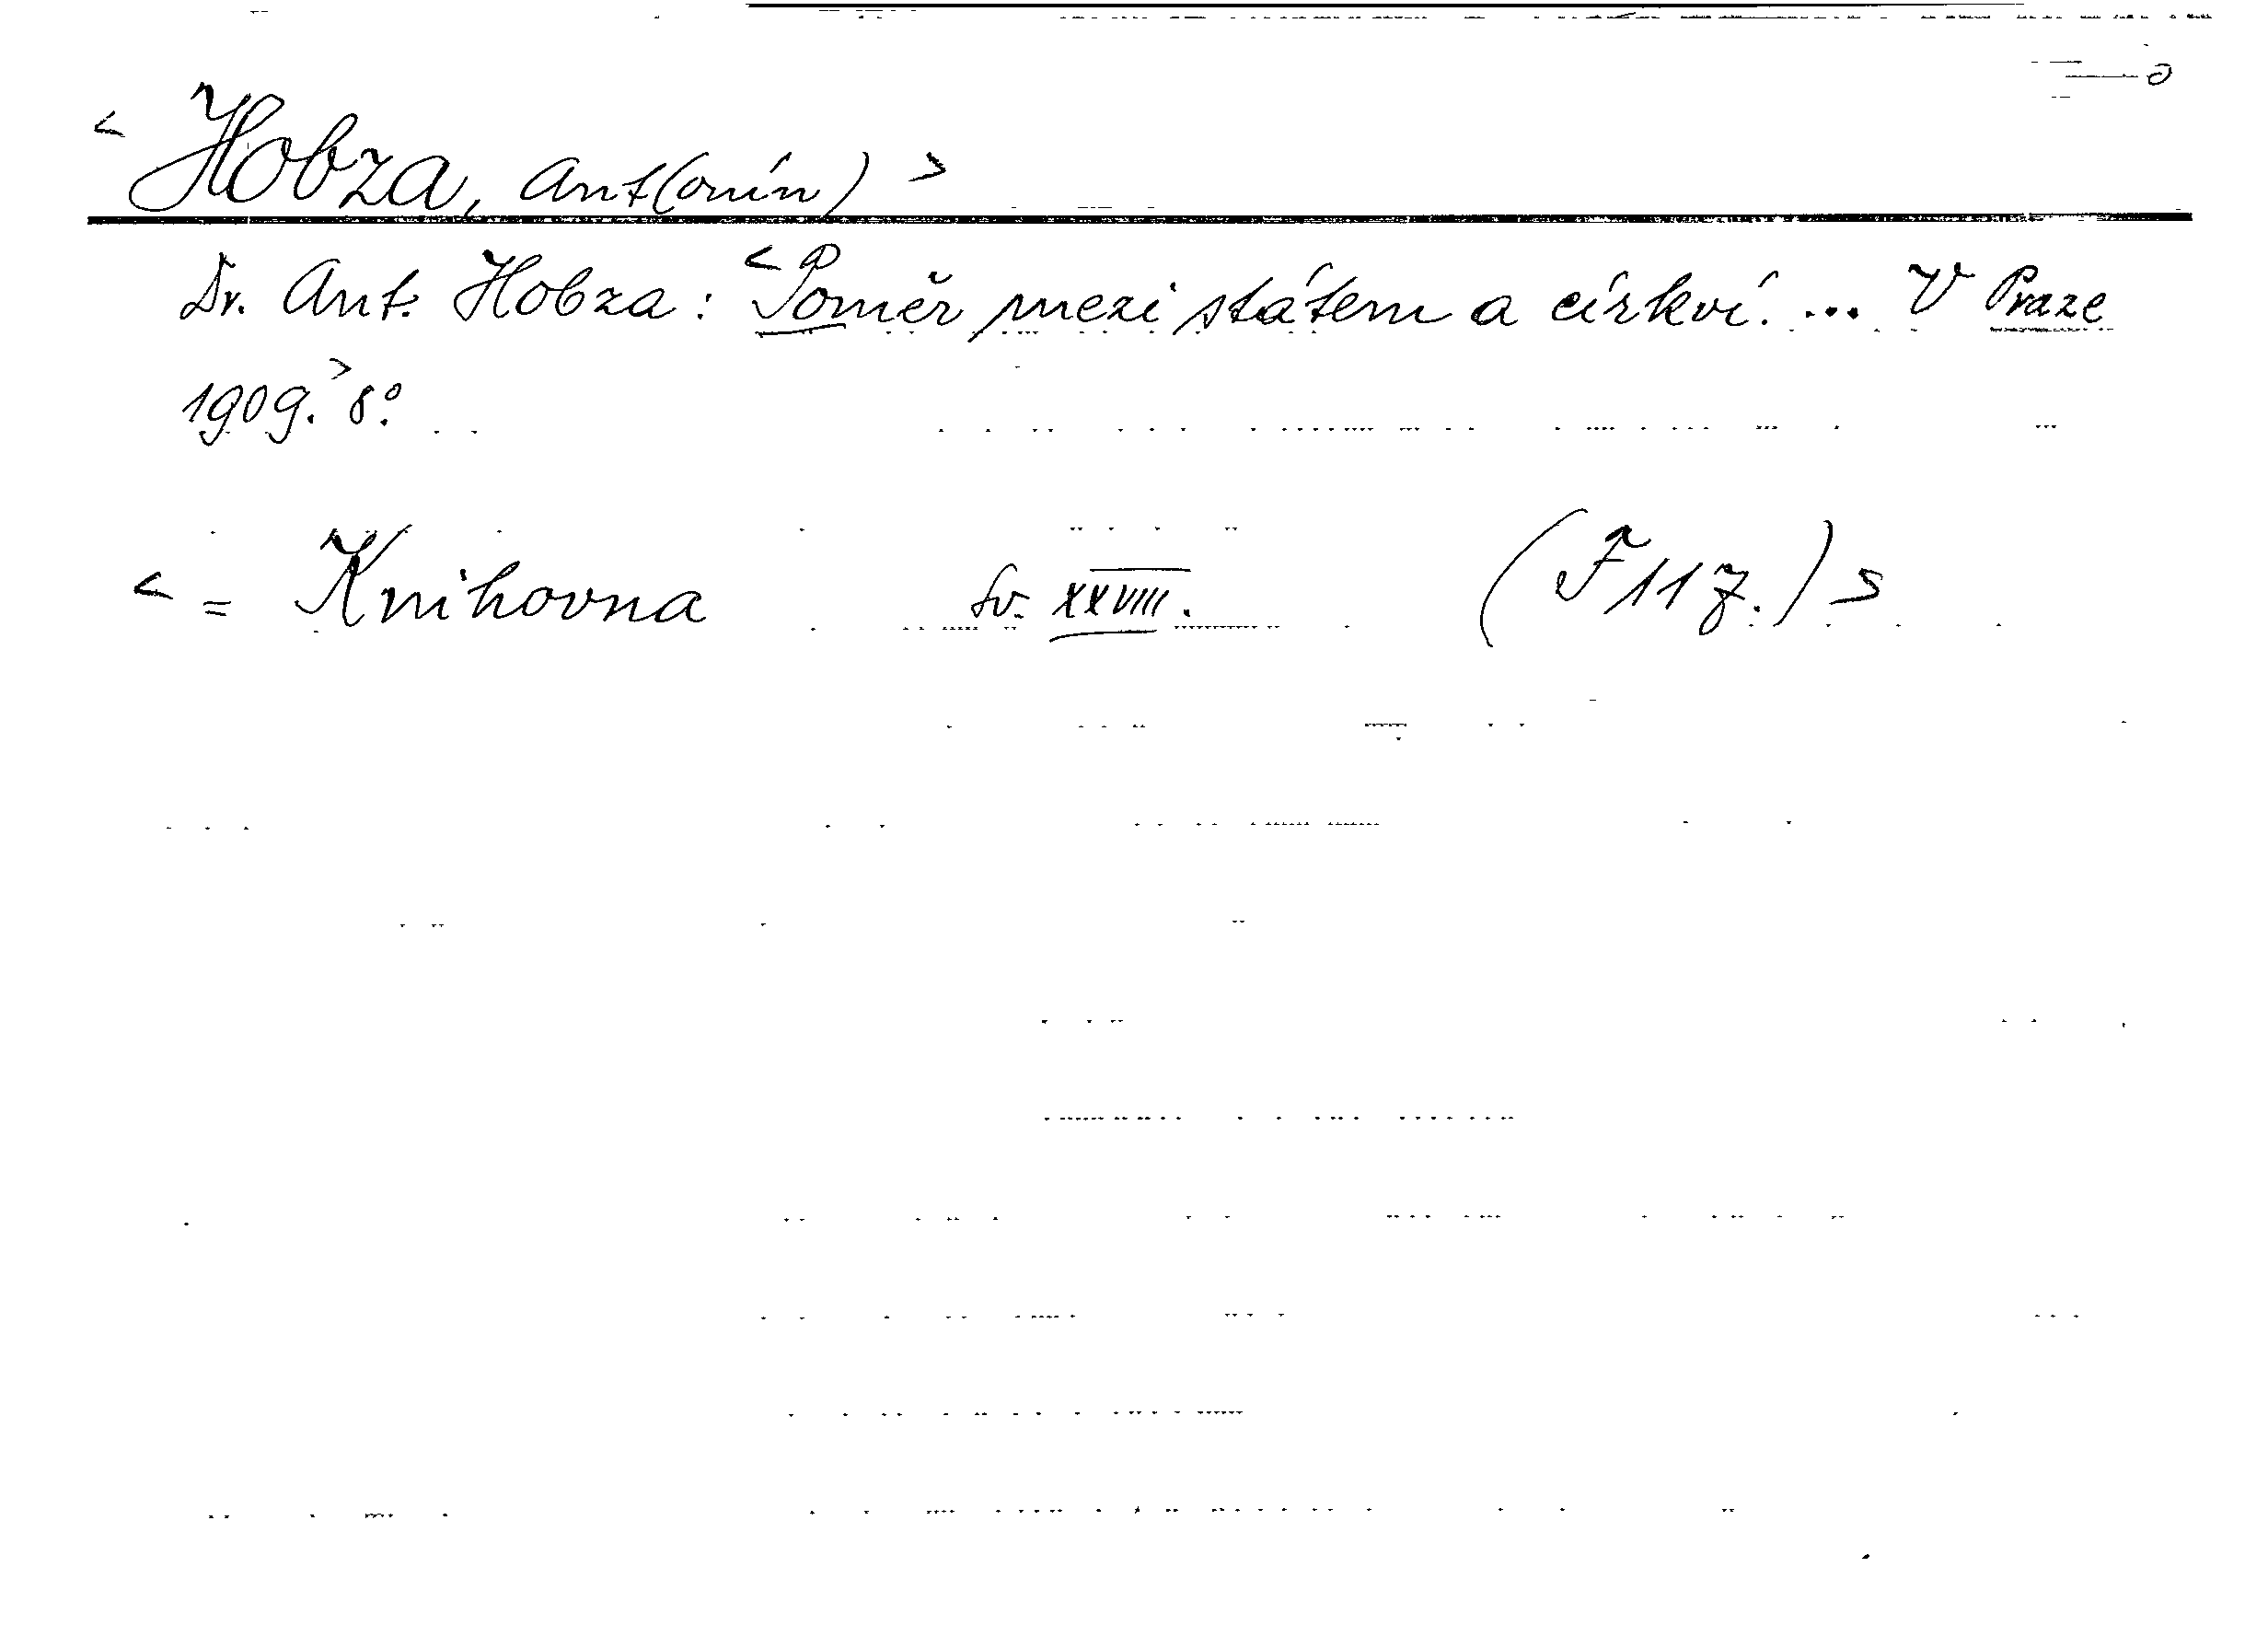 < Hobza, Ant(onín) >
Dr. Ant. Hobza: < Poměr mezi státem a církví. ... V Praze
1909. > 8°.
< = Knihovna sv. XXVIII. (F 11 7.) >